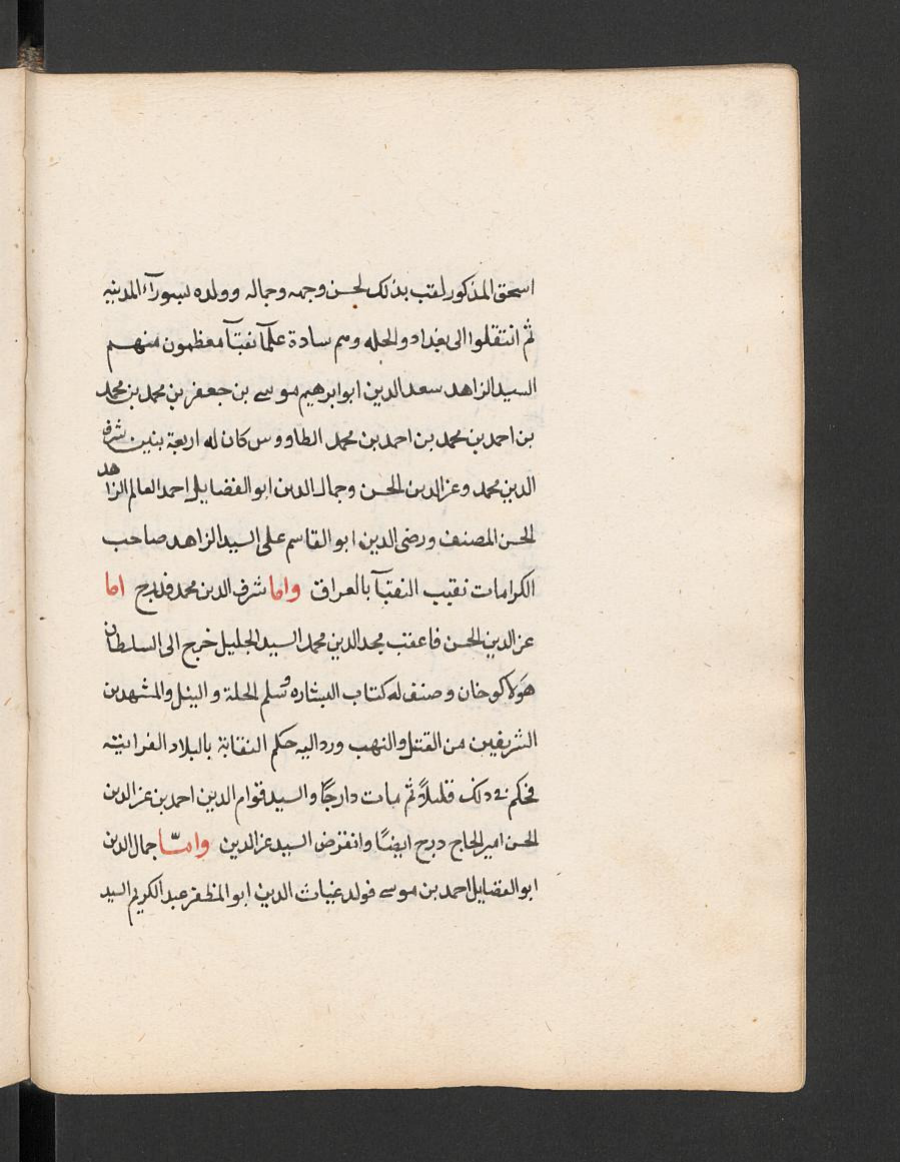 اسحق المذكور لقب بذلك لحسن وجهه وجماله وولده بسورآء المدينه
ثم انتقلوا الى بغداد والحله وهم سادة علمآ نقبآ معظمون منهم
السيد الزاهد سعد الدين ابو ابرهيم موسى بن جعفر بن محمد بن محمد
بن احمد بن محمد بن احمد بن محمد الطاووس كان له اربعة بنين شرف
الدين محمد وعز الدين الحسن وجمال الدين ابو الفضايل احمد العالم الزاهد
الحسن المصنف ورضى الدين ابو القاسم على السيد الزاهد صاحب
الكرامات نقيب النقبآ بالعراق واما شرف الدين محمد فدرج اما
عز الدين الحسن فاعقب مجد الدين محمد السيد الجليل خرج الى السلطان
هولاكو خان وصنف له كتاب البشاره وسلم الحلة و النيل والمشهدين
الشريفين من القتل والنهب ورد اليه حكم النقابة بالبلاد الفراتيه
فحكم فى ذلك قليلاً ثم مات دارجًا والسيد قوام الدين احمد بن عز الدين
الحسن امير الحاج درج ايضًا وانقرض السيد عز الدين وامّا جمال الدين
ابو الفضايل احمد بن موسى فولد غياث الدين ابو المظفر عبد الكريم السيد